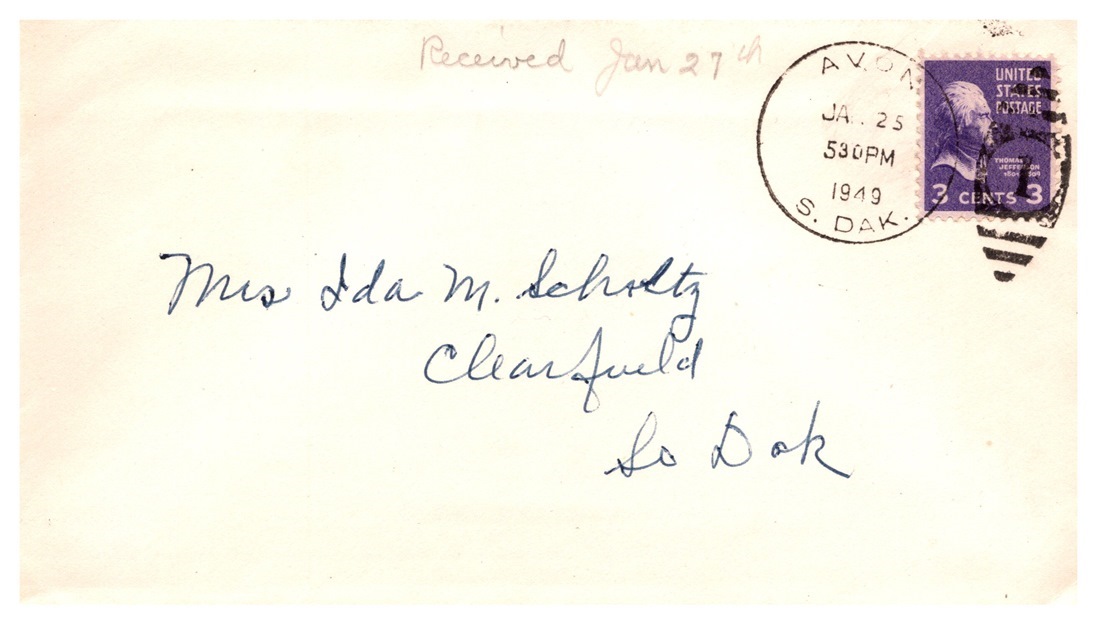 Received Jan 27th
AVON
JA. 25
530PM
1949
S. DAK.
UNITED
STATES
POSTAGE
THOMAS
JEFFERSON
3 CENTS 3
1
Mrs Ida M. Scholtz
Clearfield
So Dak